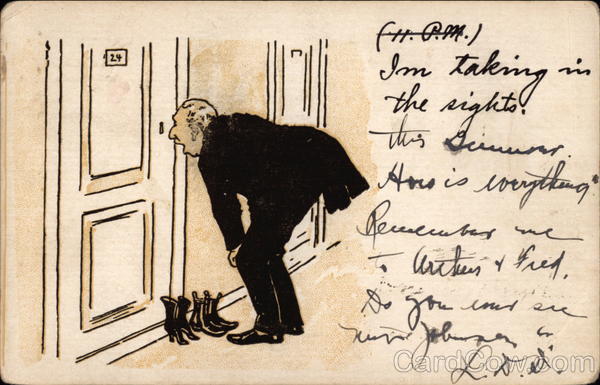 24
(11. P.M.)
I'm taking in
the sights.
this Summer.
How is everything
Remember me
to Arthur & Fred.
Do you ever see
Johnson
L. D. S.
CardCow.com